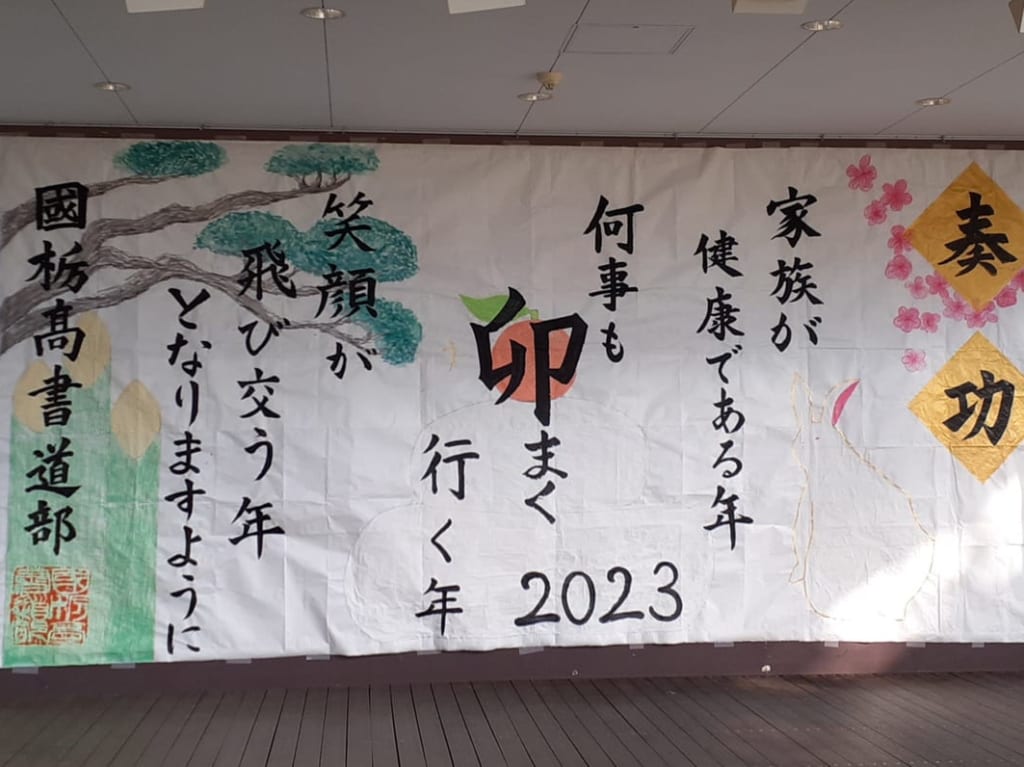 奏功
家族が
健康である年
何事も
卯まく
行く年
2023
笑顔が
飛び交う年
となりますように
國栃高書道部